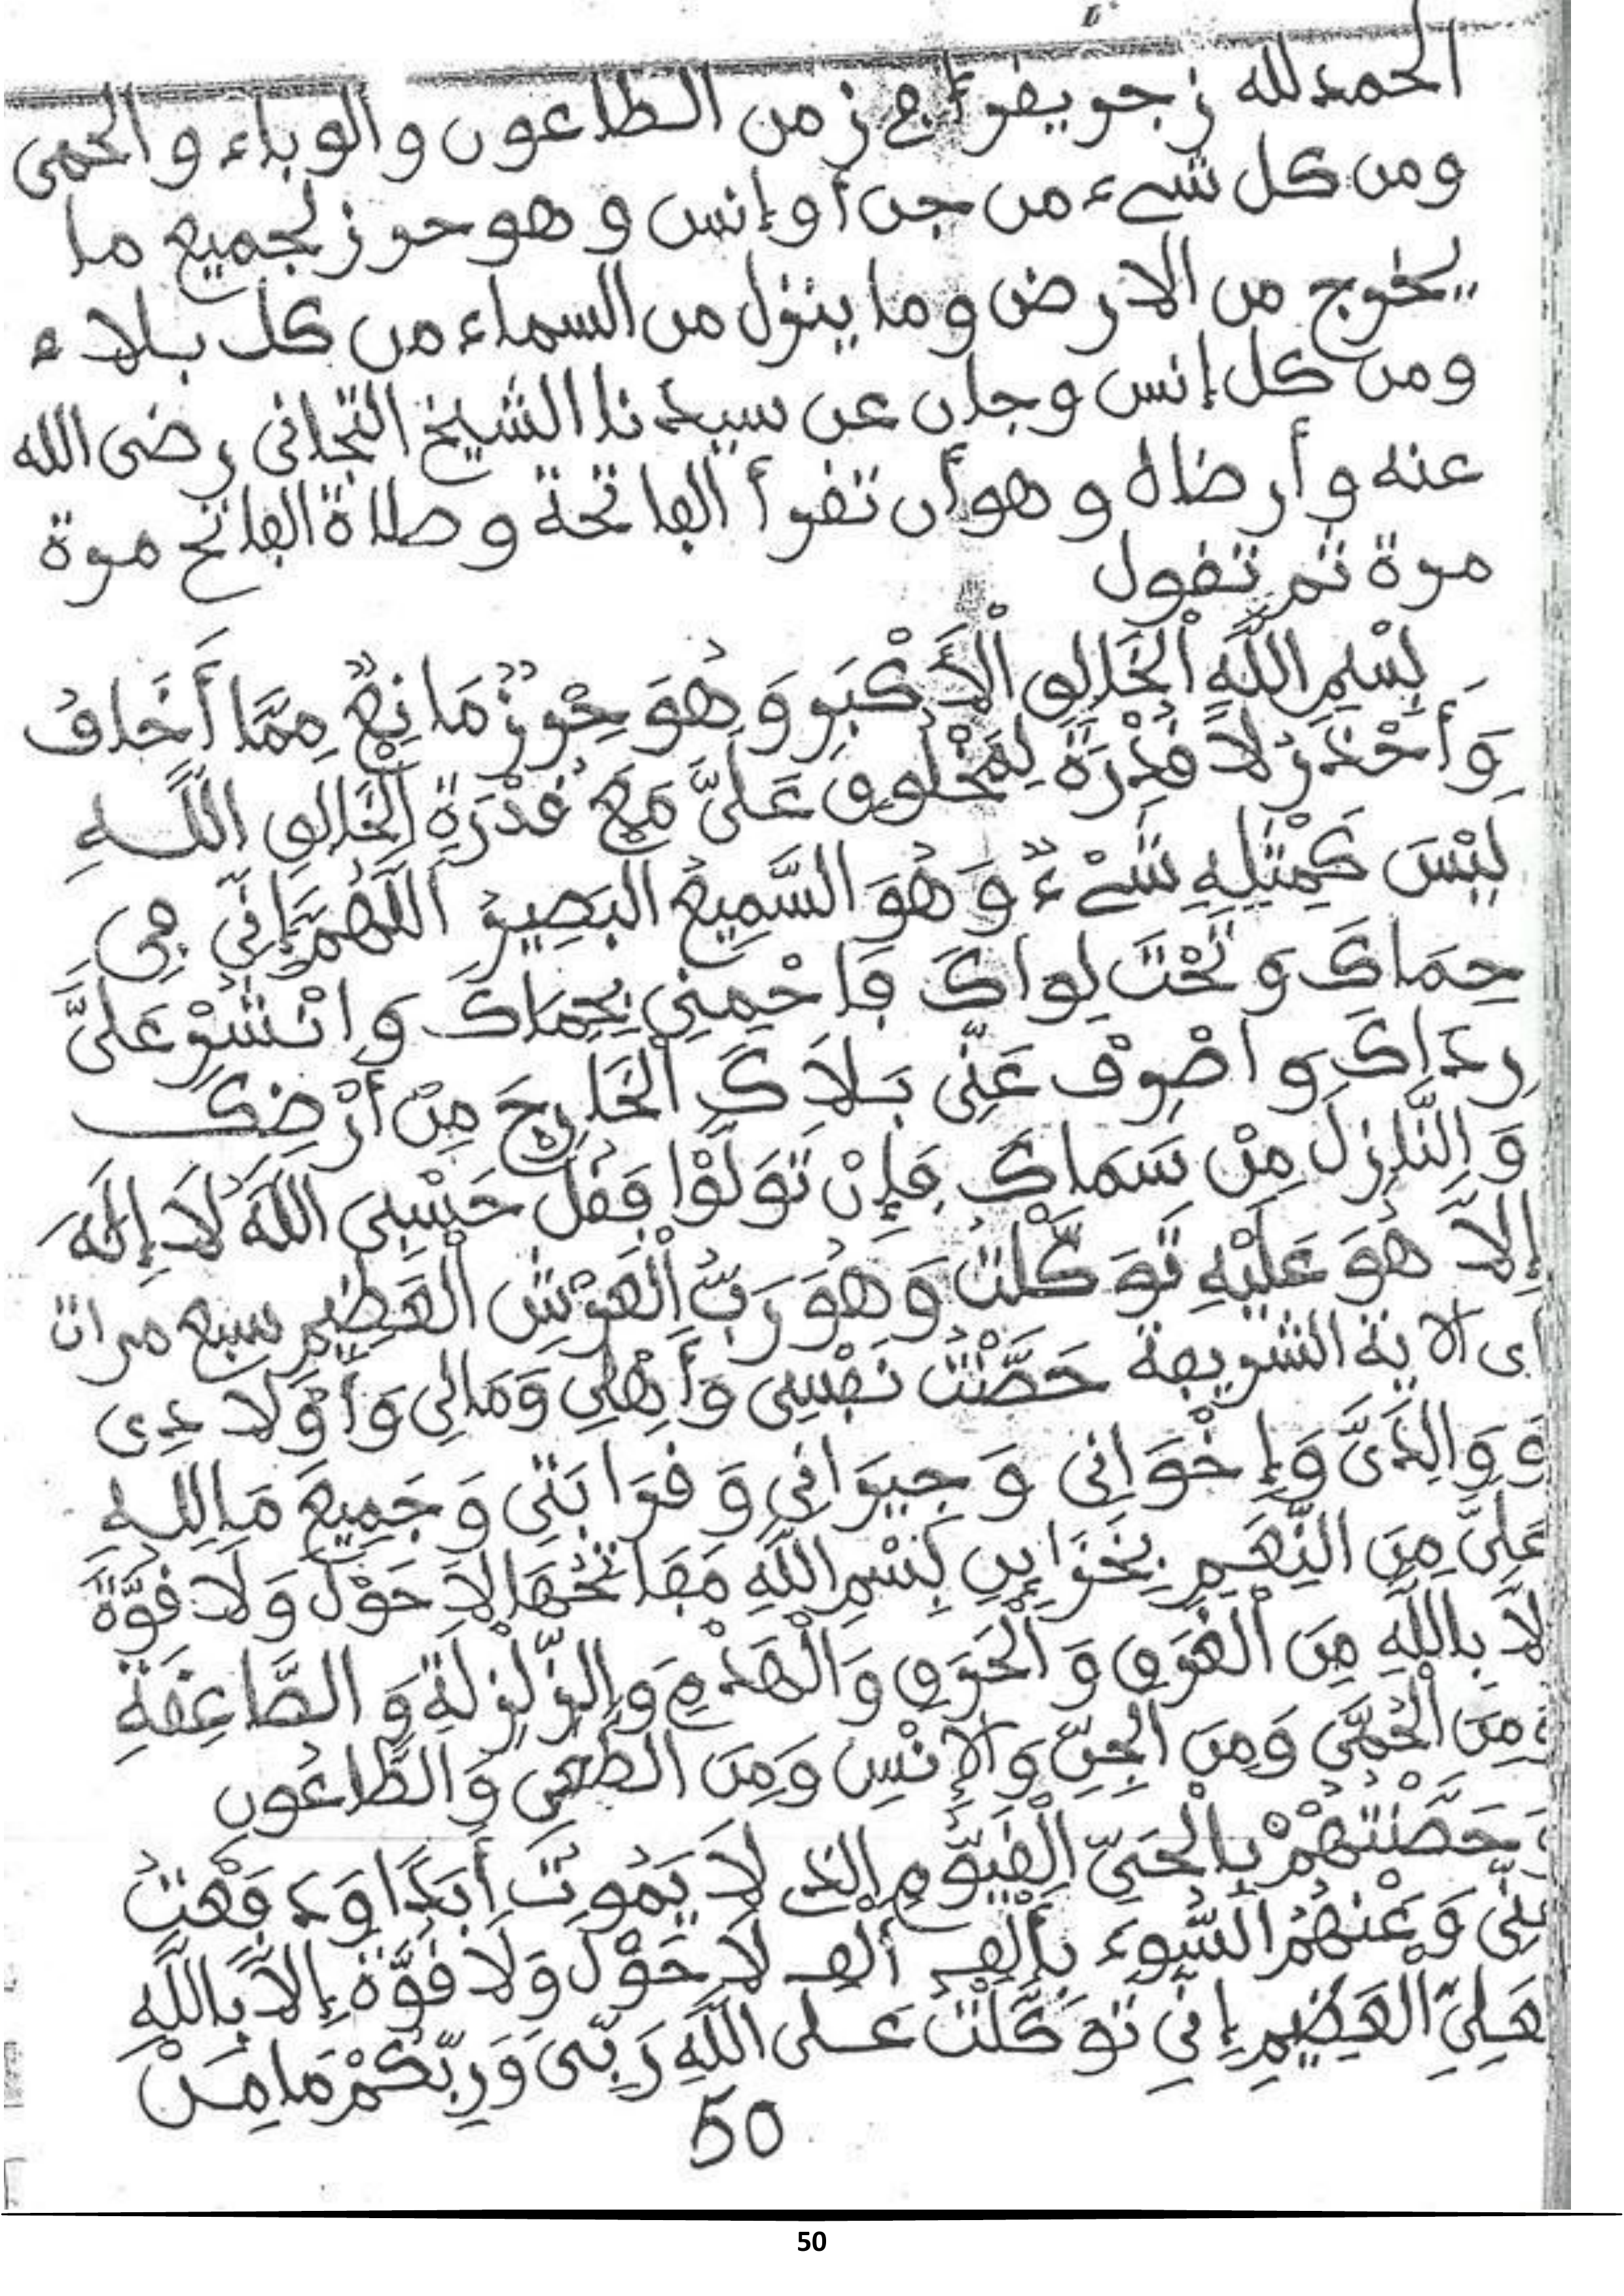 الحمد لله زجر يقرأ في زمن الطاعون والوباء والحمى
ومن كل شيء من جن أو إنس وهو حرز لجميع ما
يخرج من الارض وما ينزل من السماء من كل بلاء
ومن كل إنس وجان عن سيدنا الشيخ التجاني رضى الله
عنه وأرضاه وهو أن تقرأ الفاتحة وصلاة الفاتح مرة
مرة ثم تقول
بِسْمِ اللَّهِ الْخَالِقِ الْأَكْبَرِ وَهُوَ حِرْزٌ مَانِعٌ مِمَّا أَخَافُ
وَأَحْذَرُ لَا قُدْرَةَ لِمَخْلُوقٍ عَلَىَّ مَعَ قُدْرَةِ الْخَالِقِ اللَّهِ
لَيْسَ كَمِثْلِهِ شَيْءٌ وَهُوَ السَّمِيعُ الْبَصِيرُ اللَّهُمَّ إِنِّي فِي
حِمَاكَ وَتَحْتَ لِوَاكَ فَاحْمِنِي بِحِمَاكَ وَانْشُرْ عَلَىَّ
رِدَاكَ وَاصْرِفْ عَنِّي بَلَاكَ الْخَارِجَ مِنْ أَرْضِكَ
وَالنَّازِلَ مِنْ سَمَاكَ فَإِنْ تَوَلَّوْا فَقُلْ حَسْبِيَ اللَّهُ لَا إِلَهَ
إِلَّا هُوَ عَلَيْهِ تَوَكَّلْتُ وَهُوَ رَبُّ الْعَرْشِ الْعَظِيمِ سبع مرات
أى الاية الشريفة حَصَّنْتُ نَفْسِي وَأَهْلِي وَمَالِي وَأَوْلَادِي
وَوَالِدَىَّ وَإِخْوَانِي وَجِيرَانِي وَقَرَابَتِي وَجَمِيعَ مَا لِلهِ
عَلَىَّ مِنَ النِّعَمِ بِخَزَايِنِ بِسْمِ اللَّهِ مَفَاتِحُهَا لَا حَوْلَ وَلَا قُوَّةَ
إلَّا بِاللَّهِ مِنَ الْغَرَقِ وَالْحَرَقِ وَالْهَدْمِ وَالزَّلْزَلَةِ وَالصَّاعِقَةِ
وَمِنَ الْحُمَّى وَمِنَ الْجِنِّ وَالْإِنْسِ وَمِنَ الطَّعْنِ وَالطَّاعُونِ
وَحَصَّنْتُهُمْ بِالْحَىِّ الْقَيُّومِ الَّذِى لَا يَمُوتُ أَبَدًا وَدَفَعْتُ
عَنِّي وَعَنْهُمُ السُّوءَ بِأَلْفِ أَلْفِ لَا حَوْلَ وَلَا قُوَّةَ إِلَّا بِاللَّهِ
الْعَلِىِّ الْعَظِيمِ إِنِّي تَوَكَّلْتُ عَلَى اللَّهِ رَبِّى وَرَبِّكُمْ مَا مِنْ
50
50